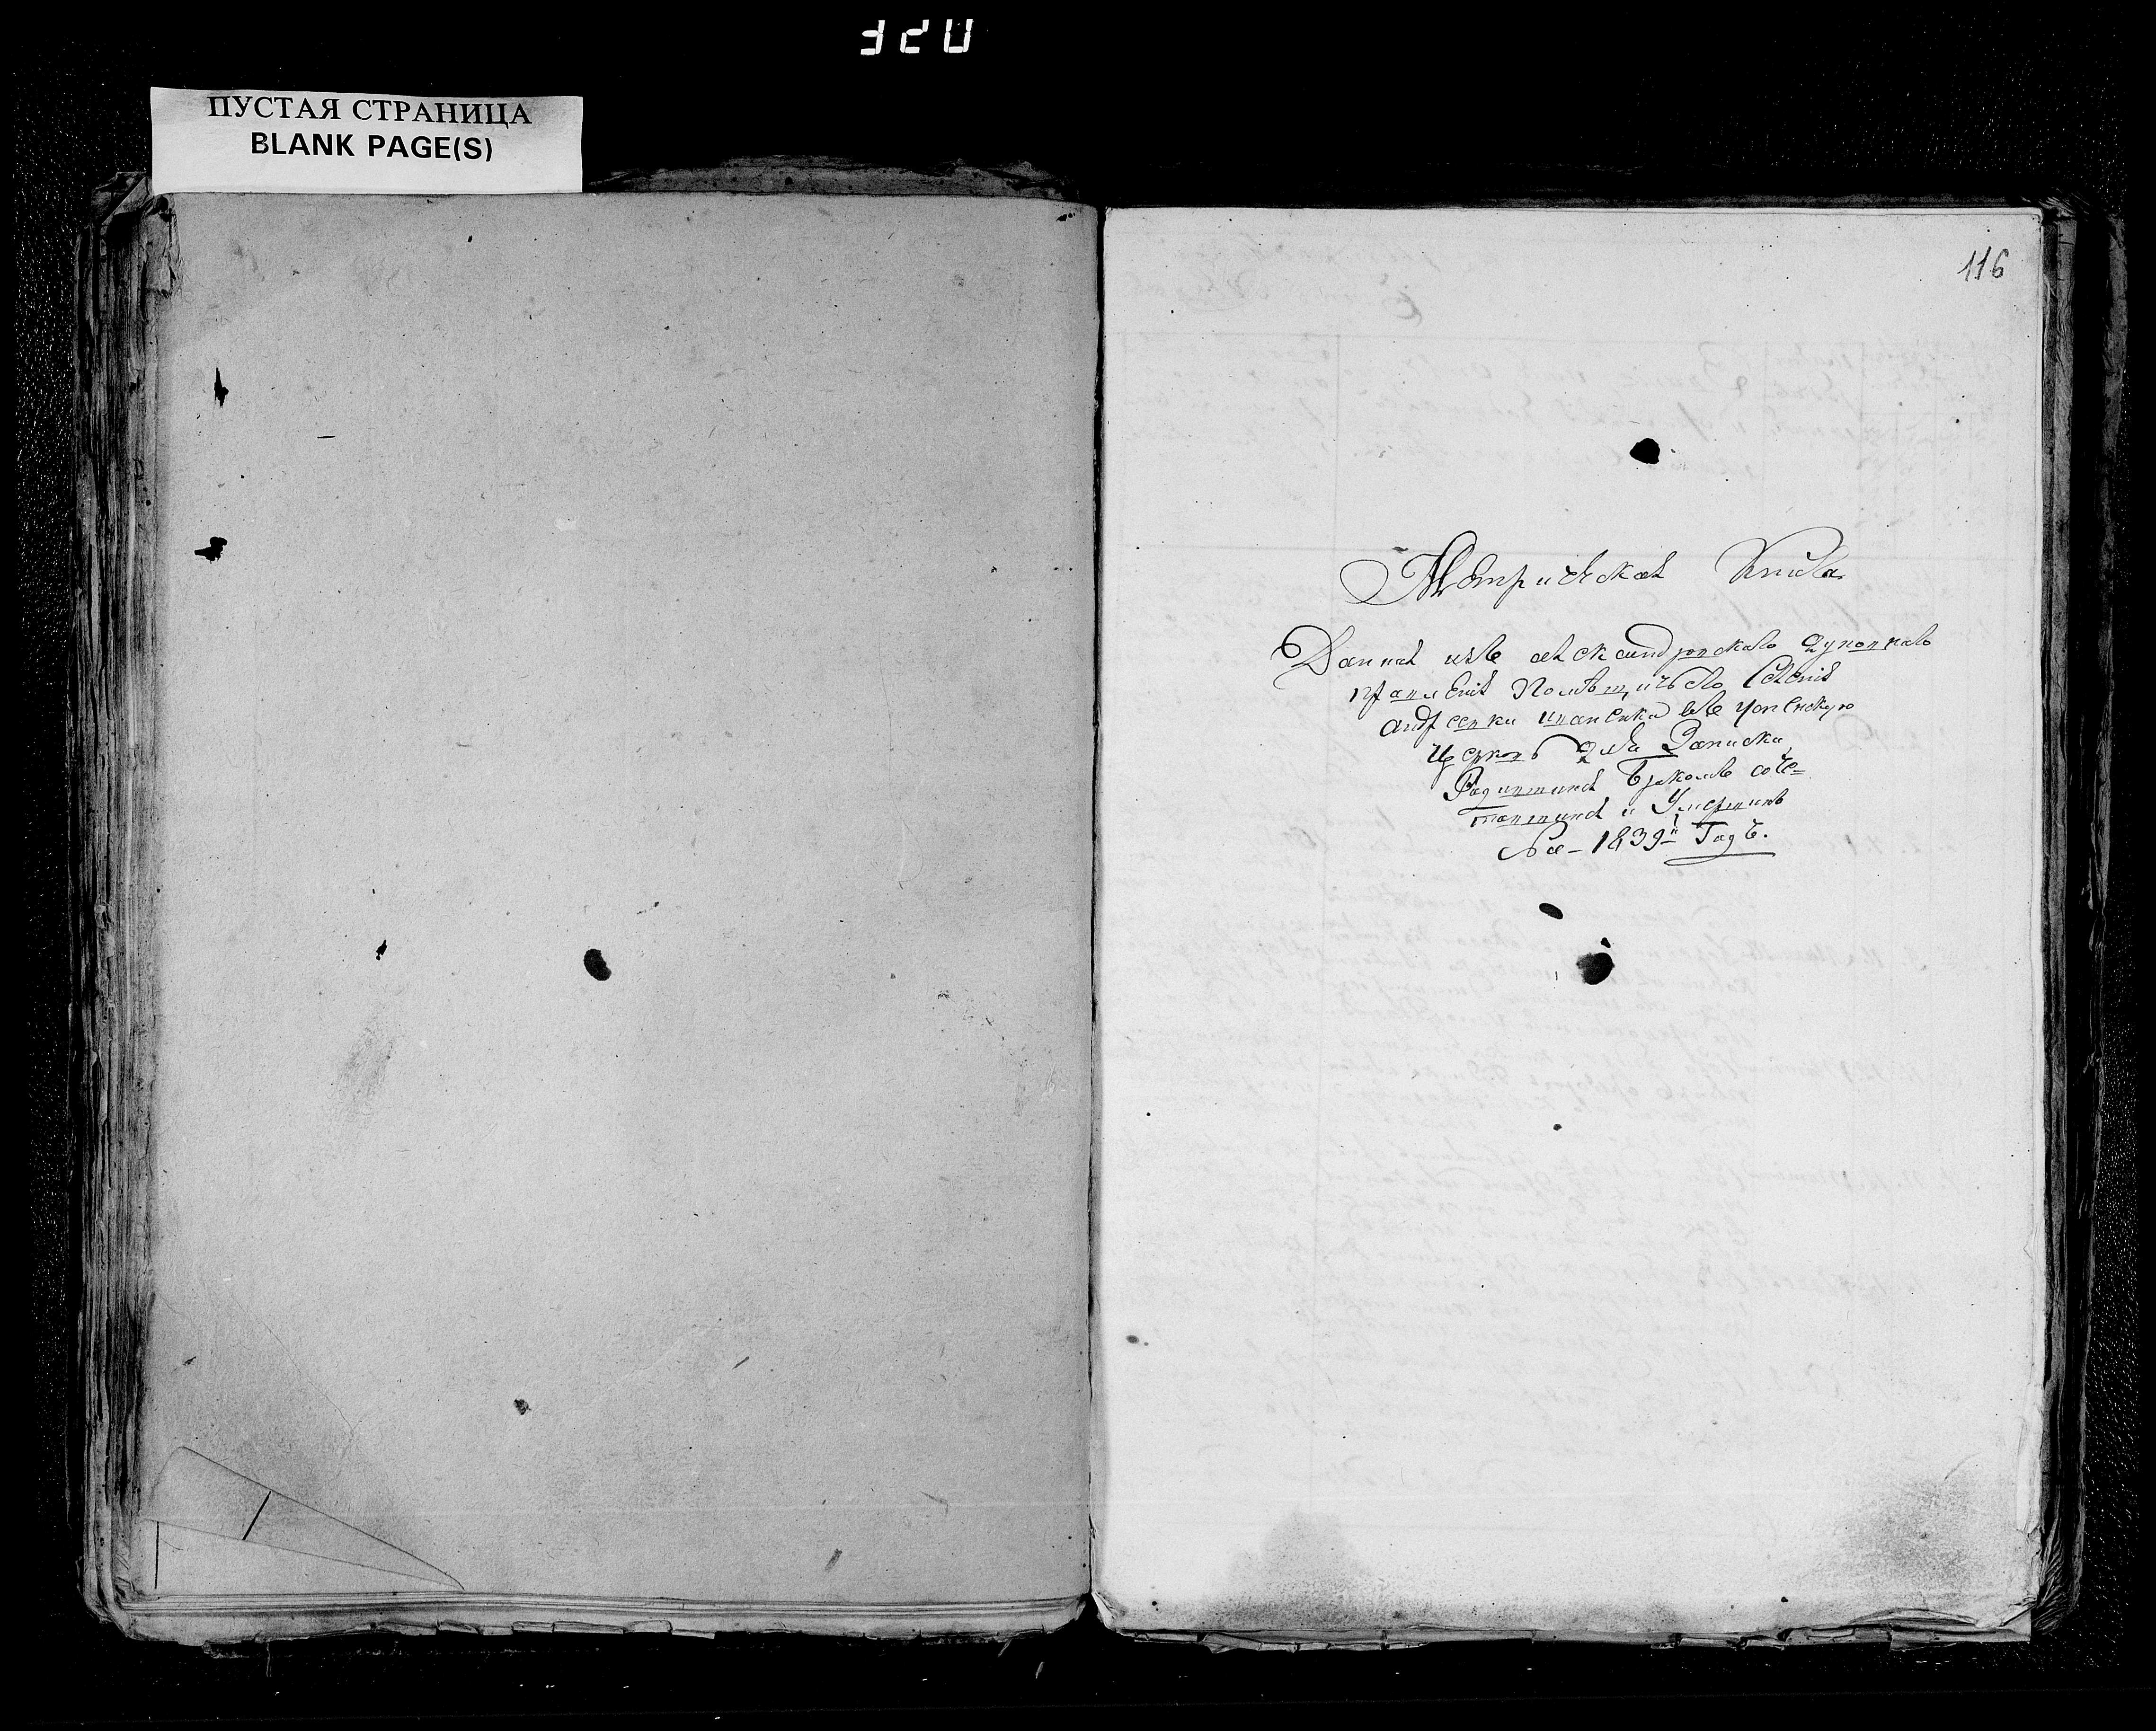 320
ПУСТАЯ СТРАНИЦА
BLANK PAGE(S)
116
Метрическая Книга
Данная изъ александровскаго духовнаго
правления Помѣщичьяго Селения
андреевки ивановки въ Успенскую
Церковь для Записки
Родившихся Бракомъ соче=
тавшихся и Умершихъ
На 1839й Годъ.